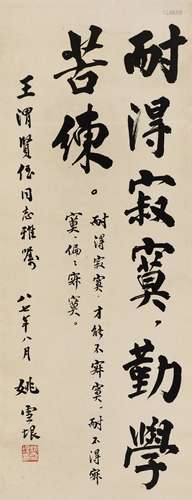 耐得寂寞，勤學
苦練。
耐得寂寞，才能不寂寞，耐不得寂
寞，偏偏寂寞。
王渭賢侄同志雅囑
八七年八月 姚雪垠